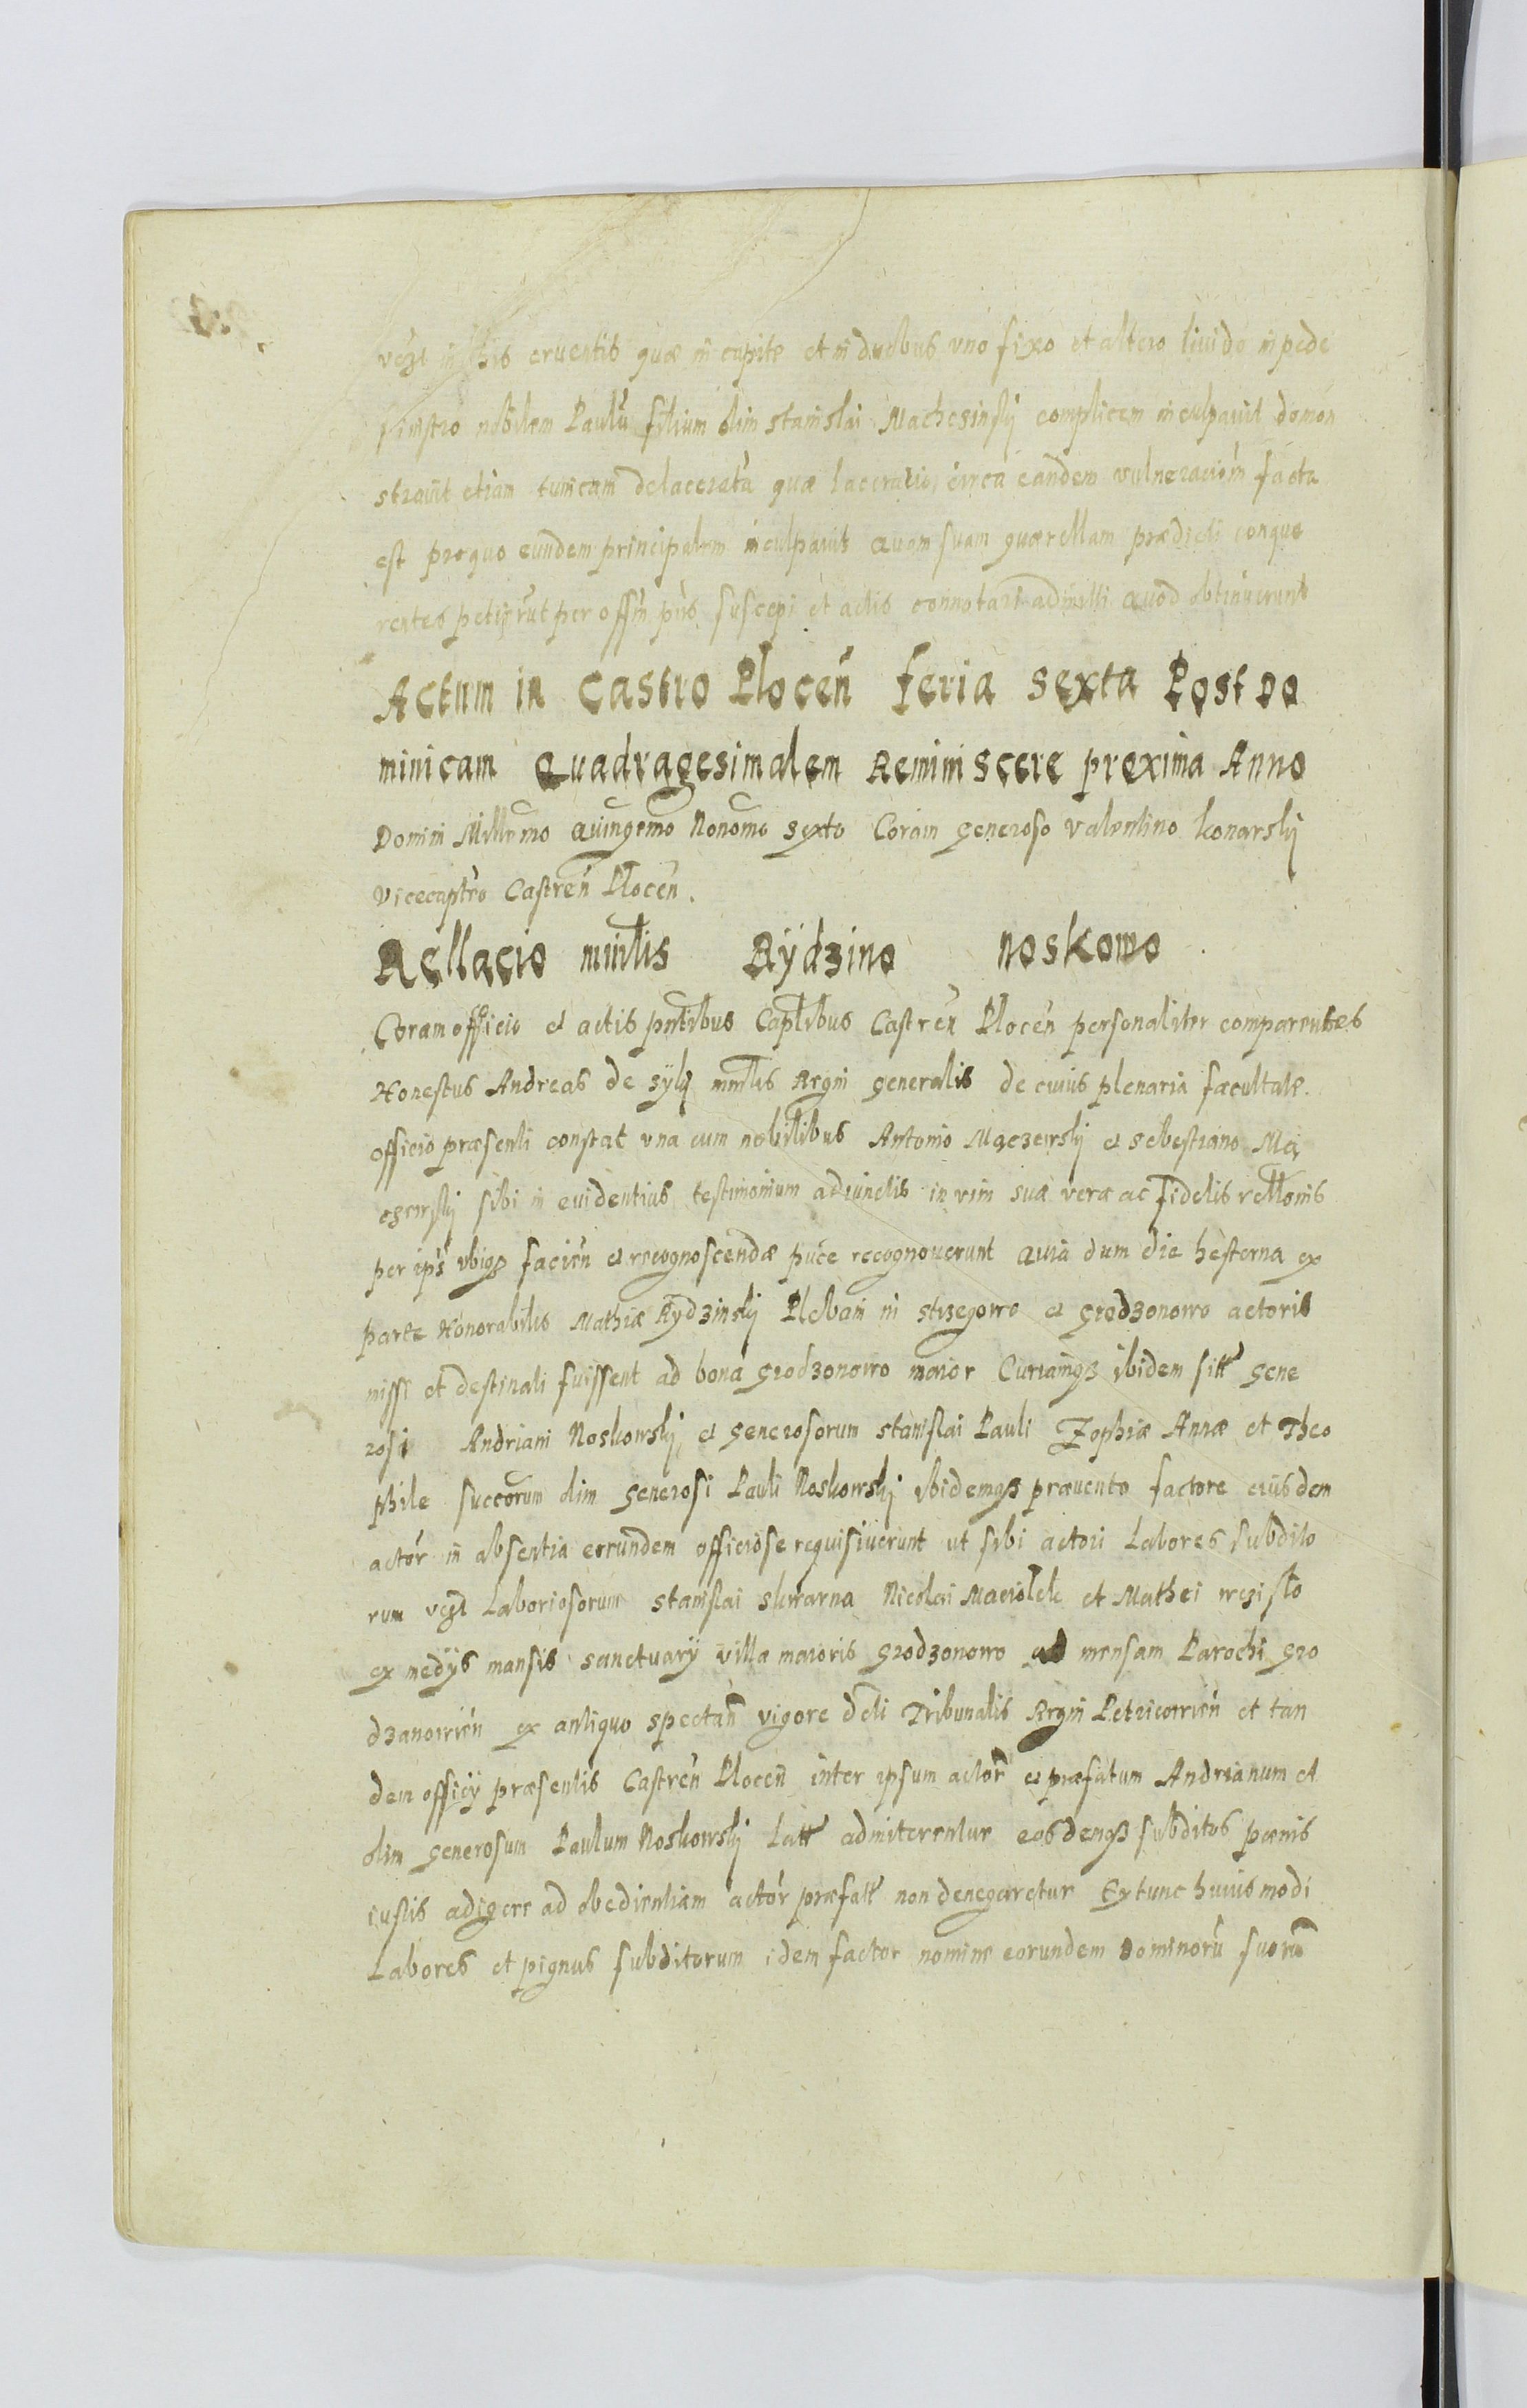 vczt in his cruentis quæ in capite et in duobus uno fixo et altero livido in pede
sinistro nobilem Paulū filium olim Stanislai Machcsinsky complicem inculpavit demon
stravit etiam tunicam delaceratā quæ laceratio circa eandem vulneracioīm facta
est pro quo eundem principalem inculpavit Quam suam quærellam prædicti conque
rentes petierūt per offīm pns suscepi et actis connotari admitti Quod obtinuerunt
Actum in Castro Plocen̄ feria sexta Post Do
minicam Quadragesimalem Reminiscere proxima Anno
Domini Millemo Quingemo Nonomo sexto Coram Generoso Valentino Konarsky
Vicecaptro Castren̄ Plocen̄.
Rellacio mīnlis Rÿdzino Noskowo
Coram officio et actis pntibus Captlibus Castren̄ Plocen̄ personaliter comparentes
Honestus Andreas de zÿly mīnlis Regni generalis de cuius plenaria facultate
officio præsenti constat una cum nobilibus Antonio Mączewsky et Sebestiano Mą
czewsky sibi in evidentius testimonium adiunctis in vim suæ veræ ac fidelis rellonis
per ips ubiqȝ facien̄ et recognoscendæ puce recognoverunt Quia dum die hesterna ex
parte Honorabilis Mathiæ Rÿdzinsky Plebani in Strzegowo et Grodzonowo actoris
missi et destinati fuissent ad bona Grodzonowo maior Curiamqȝ ibidem sitt Gene
rosi Andriani Noskowsky et Generosorum Stanislai Pauli Zophiæ Annæ et Theo
phile succorum olim Generosi Pauli Noskowsky ibidemqȝ prævento factore eiusdem
actor in absentia eorundem officiose requisiverunt ut sibi actori Labores subdito
rum vczt Laboriosorum Stanislai Skwarna Nicolai Maciolek et Mathei wczisło
ex medÿs mansis sanctuarÿ villæ maioris Grodzonowo ad mensam Parochi Gro
dzanowien̄ ex antiquo spectan̄ vigore dcti Tribunalis Regni Petricovien̄ et tan
dem officÿ præsentis Castren̄ Plocen̄ inter ipsum actor̄ et præfatum Andrianum et
olim Generosum Paulum Noskowsky Latt admiterentur eosdemqȝ subditos pœnis
iustis adigere ad obedientiam actor præfatt non denegaretur Extunc huiusmodi
Labores et pignus subditorum idem factor nomine eorundem Dominorū suorū